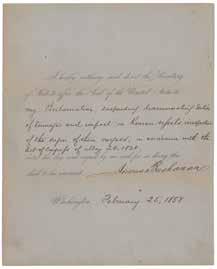 I hereby authorize and direct the Secretary
of State to affix the Seal of the United States to
my Proclamation, suspending discriminating duties
of tonnage and impost on Roman vessels, irrespective
of the origin of their cargoes, in accordance with the
Act of Congress of May 24, 1828.
dated this day, and signed by me and for so doing this
shall be his warrant.
James Buchanan
Washington, February 25, 1858